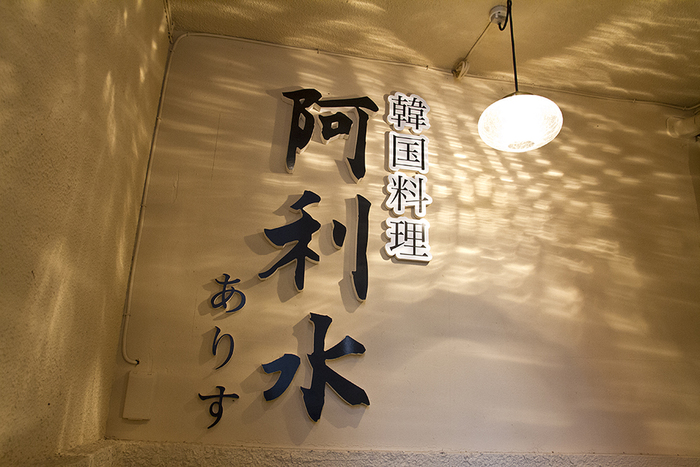 韓国料理
阿利水
ありす